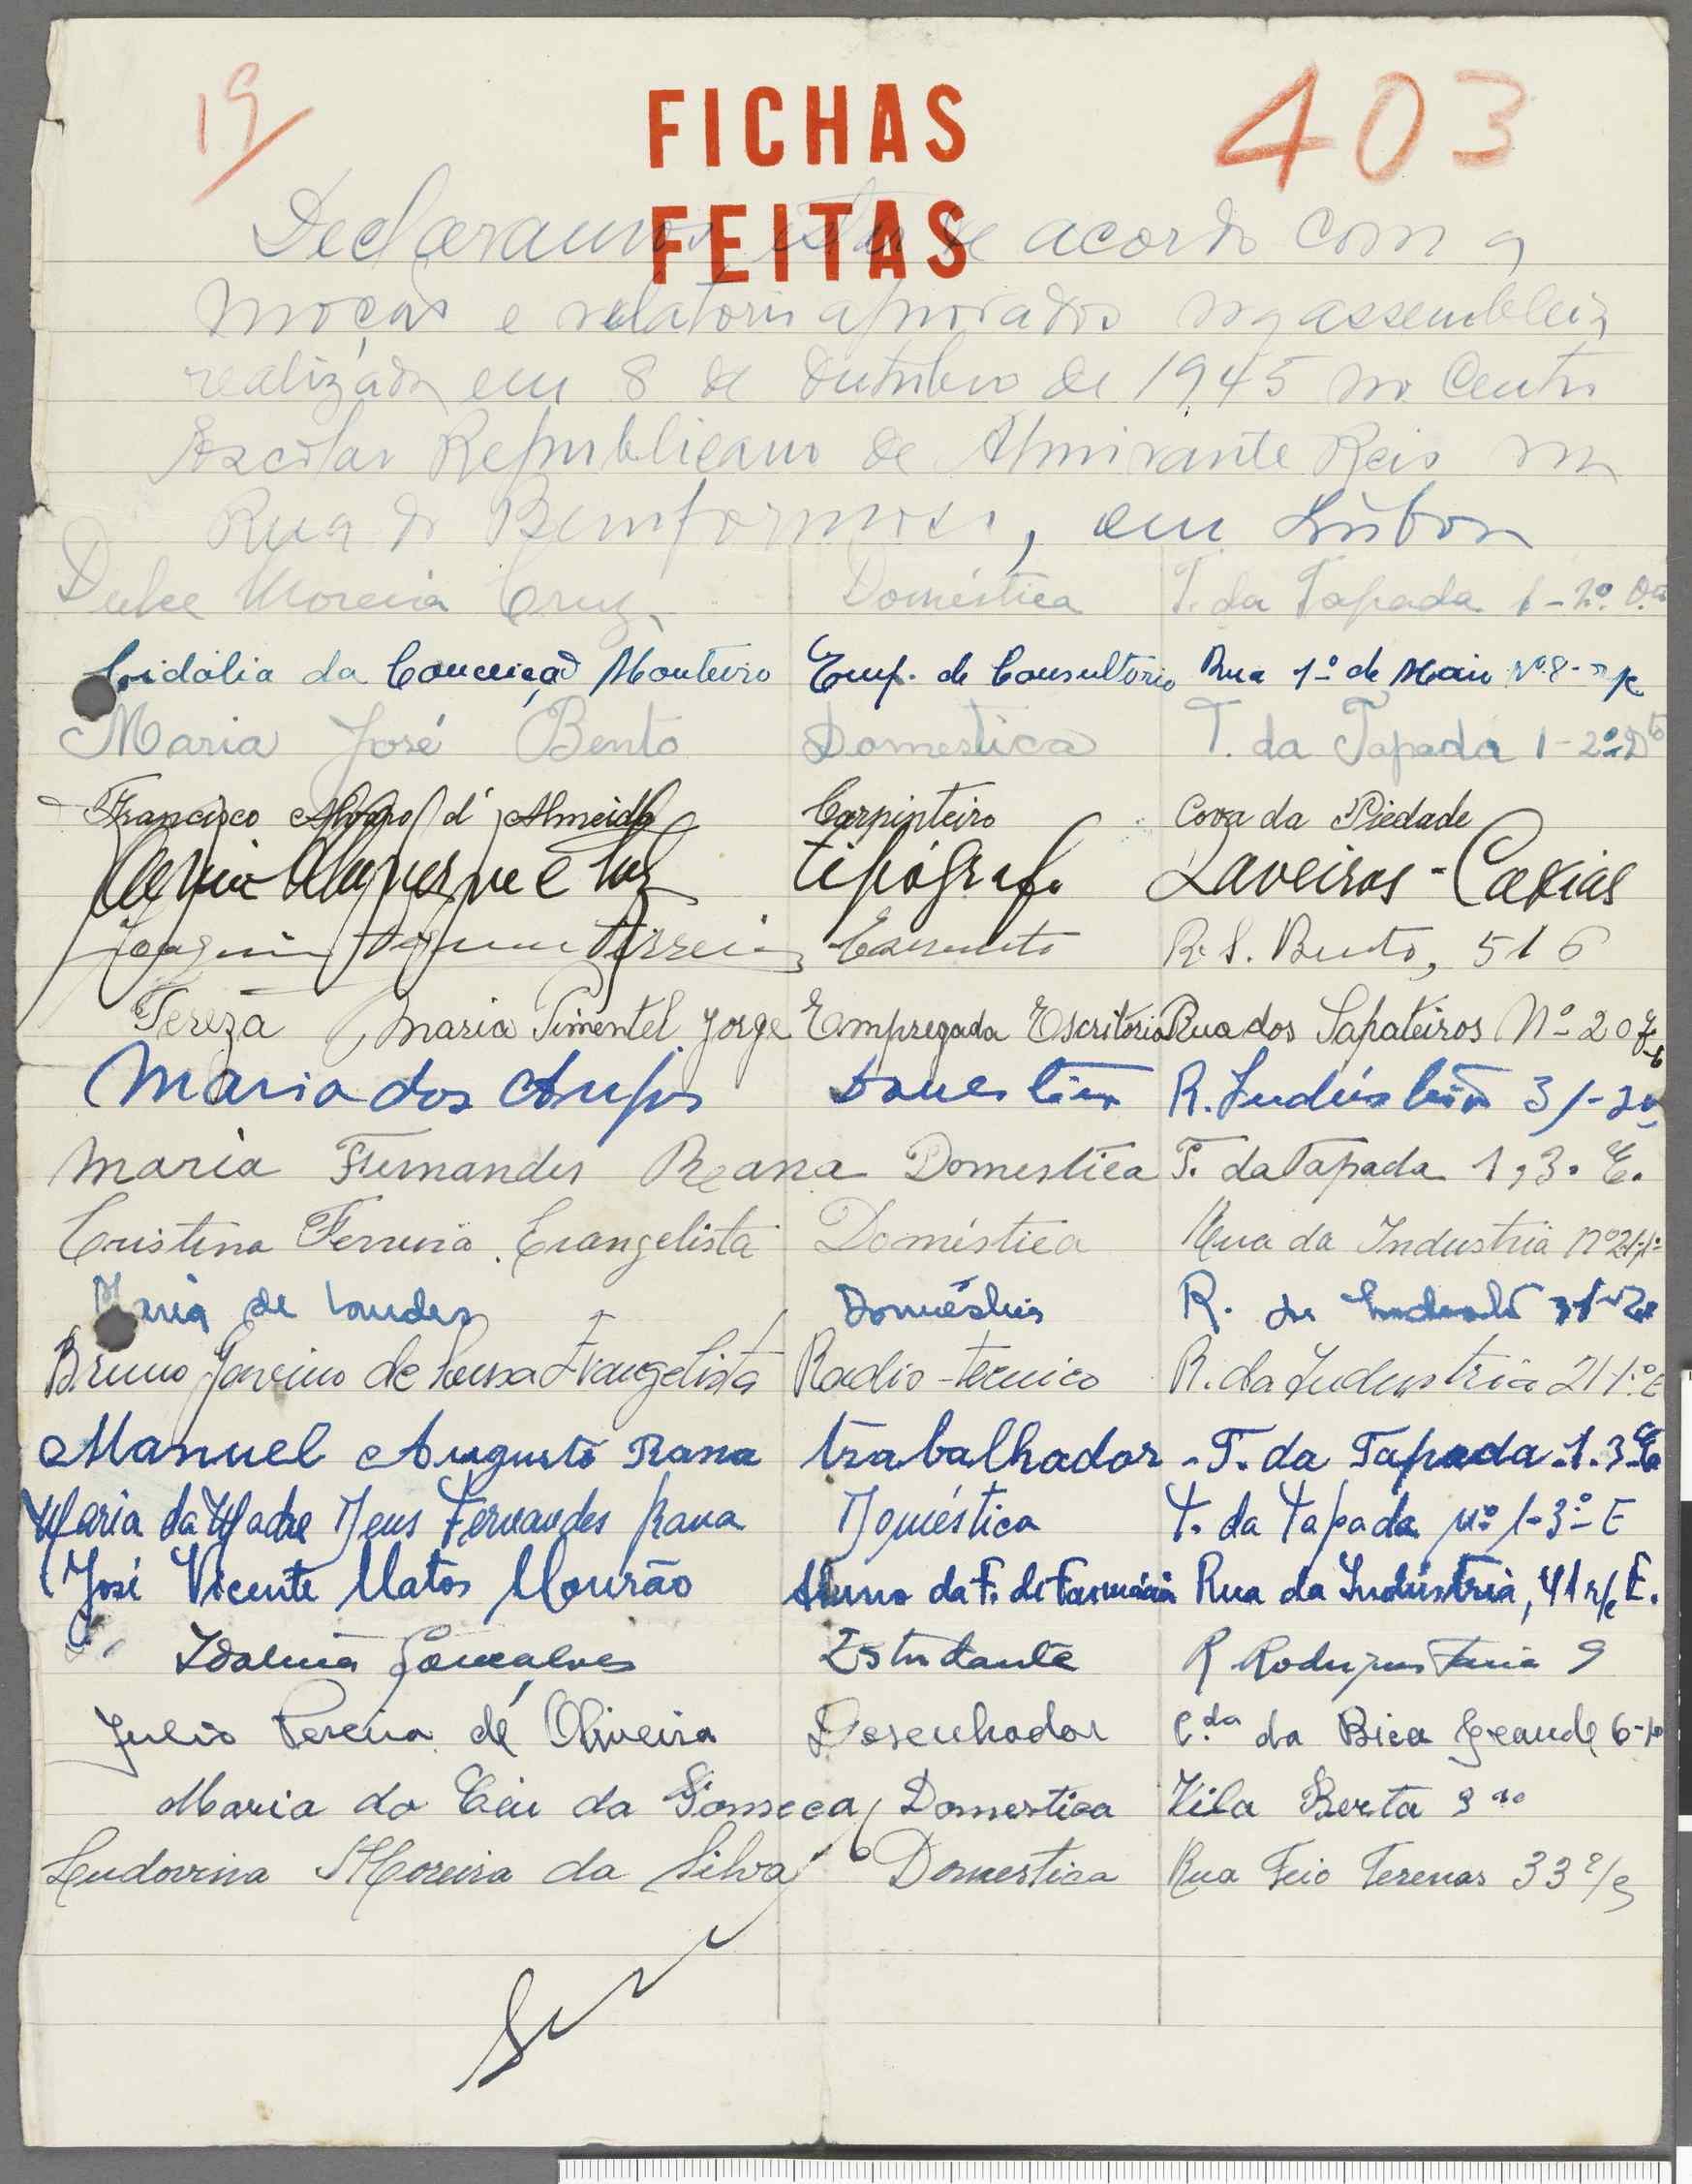 19
403
FICHAS
FEITAS
Declaramos estar de acordo com a
moção e relatorio aprovados na assembleia
realizada em 8 de Outubro de 1945 no Centro
Escolar Republicano de Almirante Reis na
Rua do Bemformoso, em Lisboa
Dulce Moreira Cruz Doméstica T. da Tapada 1-2º D.to
Lidália da Conceição Monteiro Emp. de Consultório Rua 1º de Maio Nº 8-
Maria José Bento Domestica T. da Tapada 1-2º D.to
Francisco d'Almeida Carpinteiro Cova da Piedade
Luz tipógrafo Laveiras-Caxias
Joaquim R. S. Bento, 516
Tereza Maria Pimentel Jorge Empregada Escritório Rua dos Sapateiros Nº 207
Maria dos Anjos Doméstica R. Indústria 31-
Maria Fernandes Reana Domestica T. da Tapada 1,3. E.
Cristina Ferreira Evangelista Doméstica Rua da Industria nº 21,1º
Maria de Lourdes Doméstica R. da 31-
Bruno de Sousa Evangelista Radio-tecnico R. da Industria 21 1º E
Manuel Augusto Rana trabalhador - T. da Tapada -1.3-E
Maria da Madre Deus Fernandes Rana Doméstica T. da Tapada nº 1-3º E
José Vicente Matos Mourão Aluno da F. de Farmácia Rua da Indústria, 41 r/c E.
Idalina Gonçalves Estudante R Rodrigues Faria 9
Julio Pereira de Oliveira Desenhador C.da da Bica Grande 6-1º
Maria do Céu da Fonseca Domestica Vila Berta 9
Ludovina Moreira da Silva Domestica Rua Feio Terenas 33